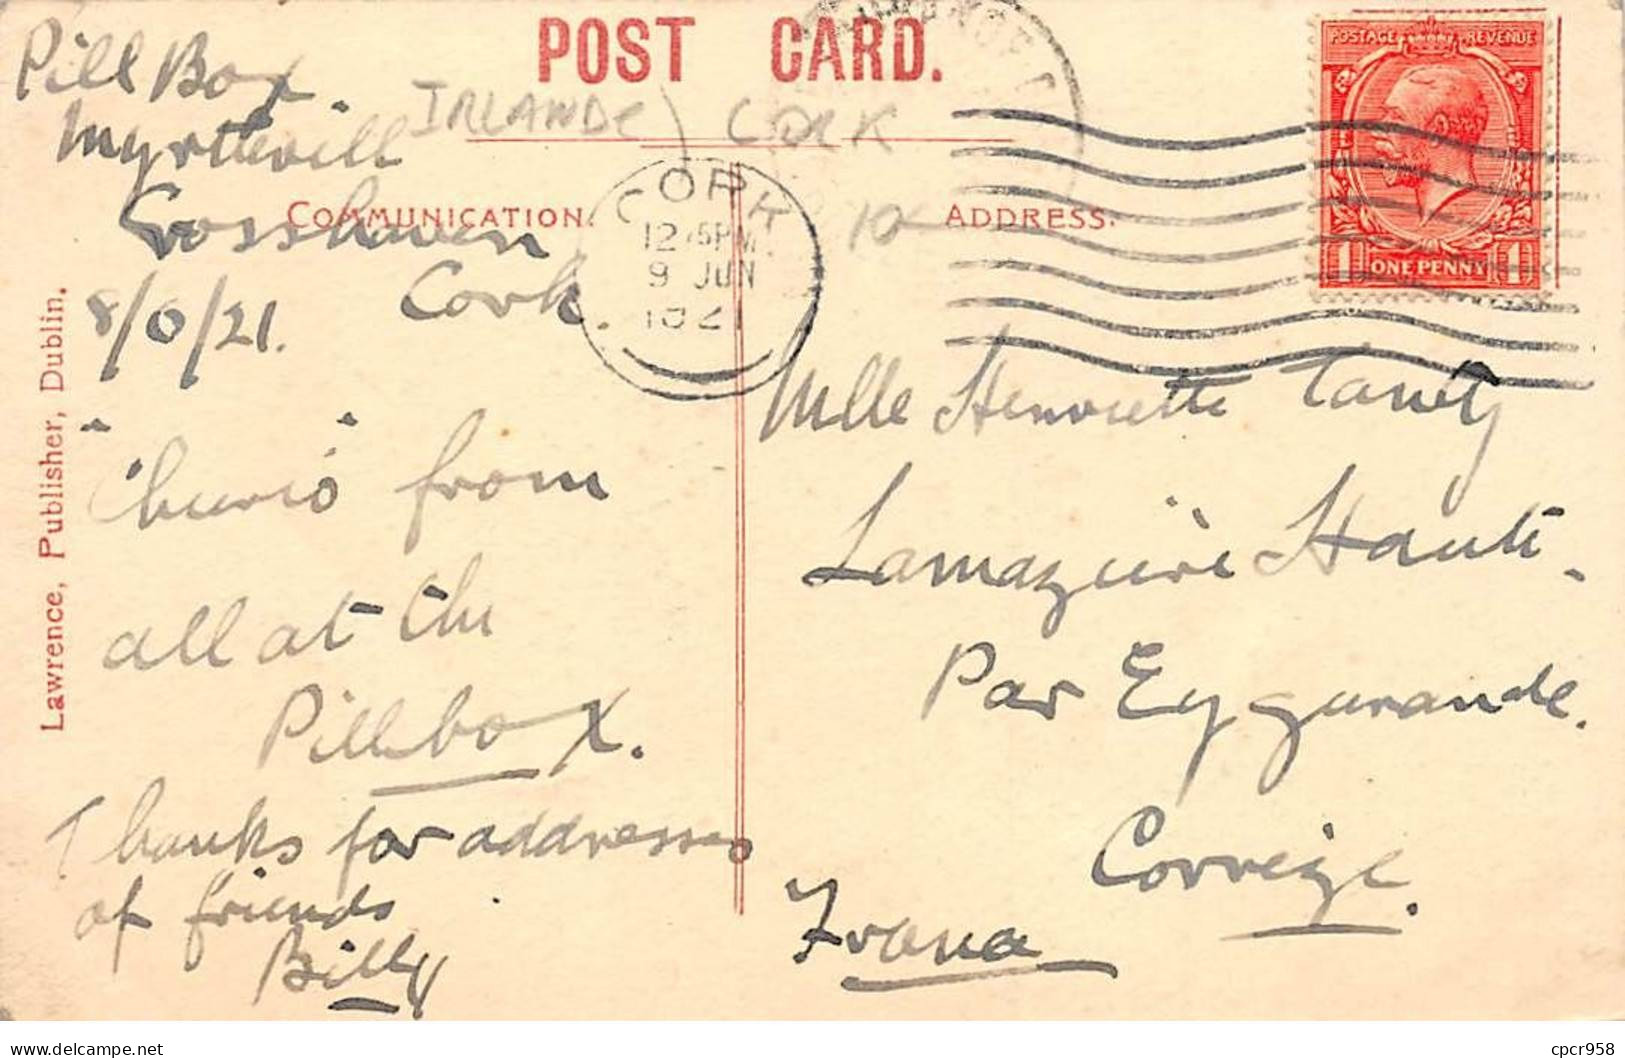 POST CARD.
Pill Box.
Myrtleville
Crosshaven
Cork.
8/6/21.
IRLANDE) CORK
10
COMMUNICATION.
ADDRESS.
CORK
12.15PM
9 JUN
1921
POSTAGE REVENUE
1 ONE PENNY 1
Lawrence, Publisher, Dublin.
"Cheerio" from
all at the
Pillbox.
Thanks for addresses
of friends
Billy
Mlle Henriette
Lamazière Haute.
Par Eygurande.
Corrèze.
France
delcampe.net
cpcr958